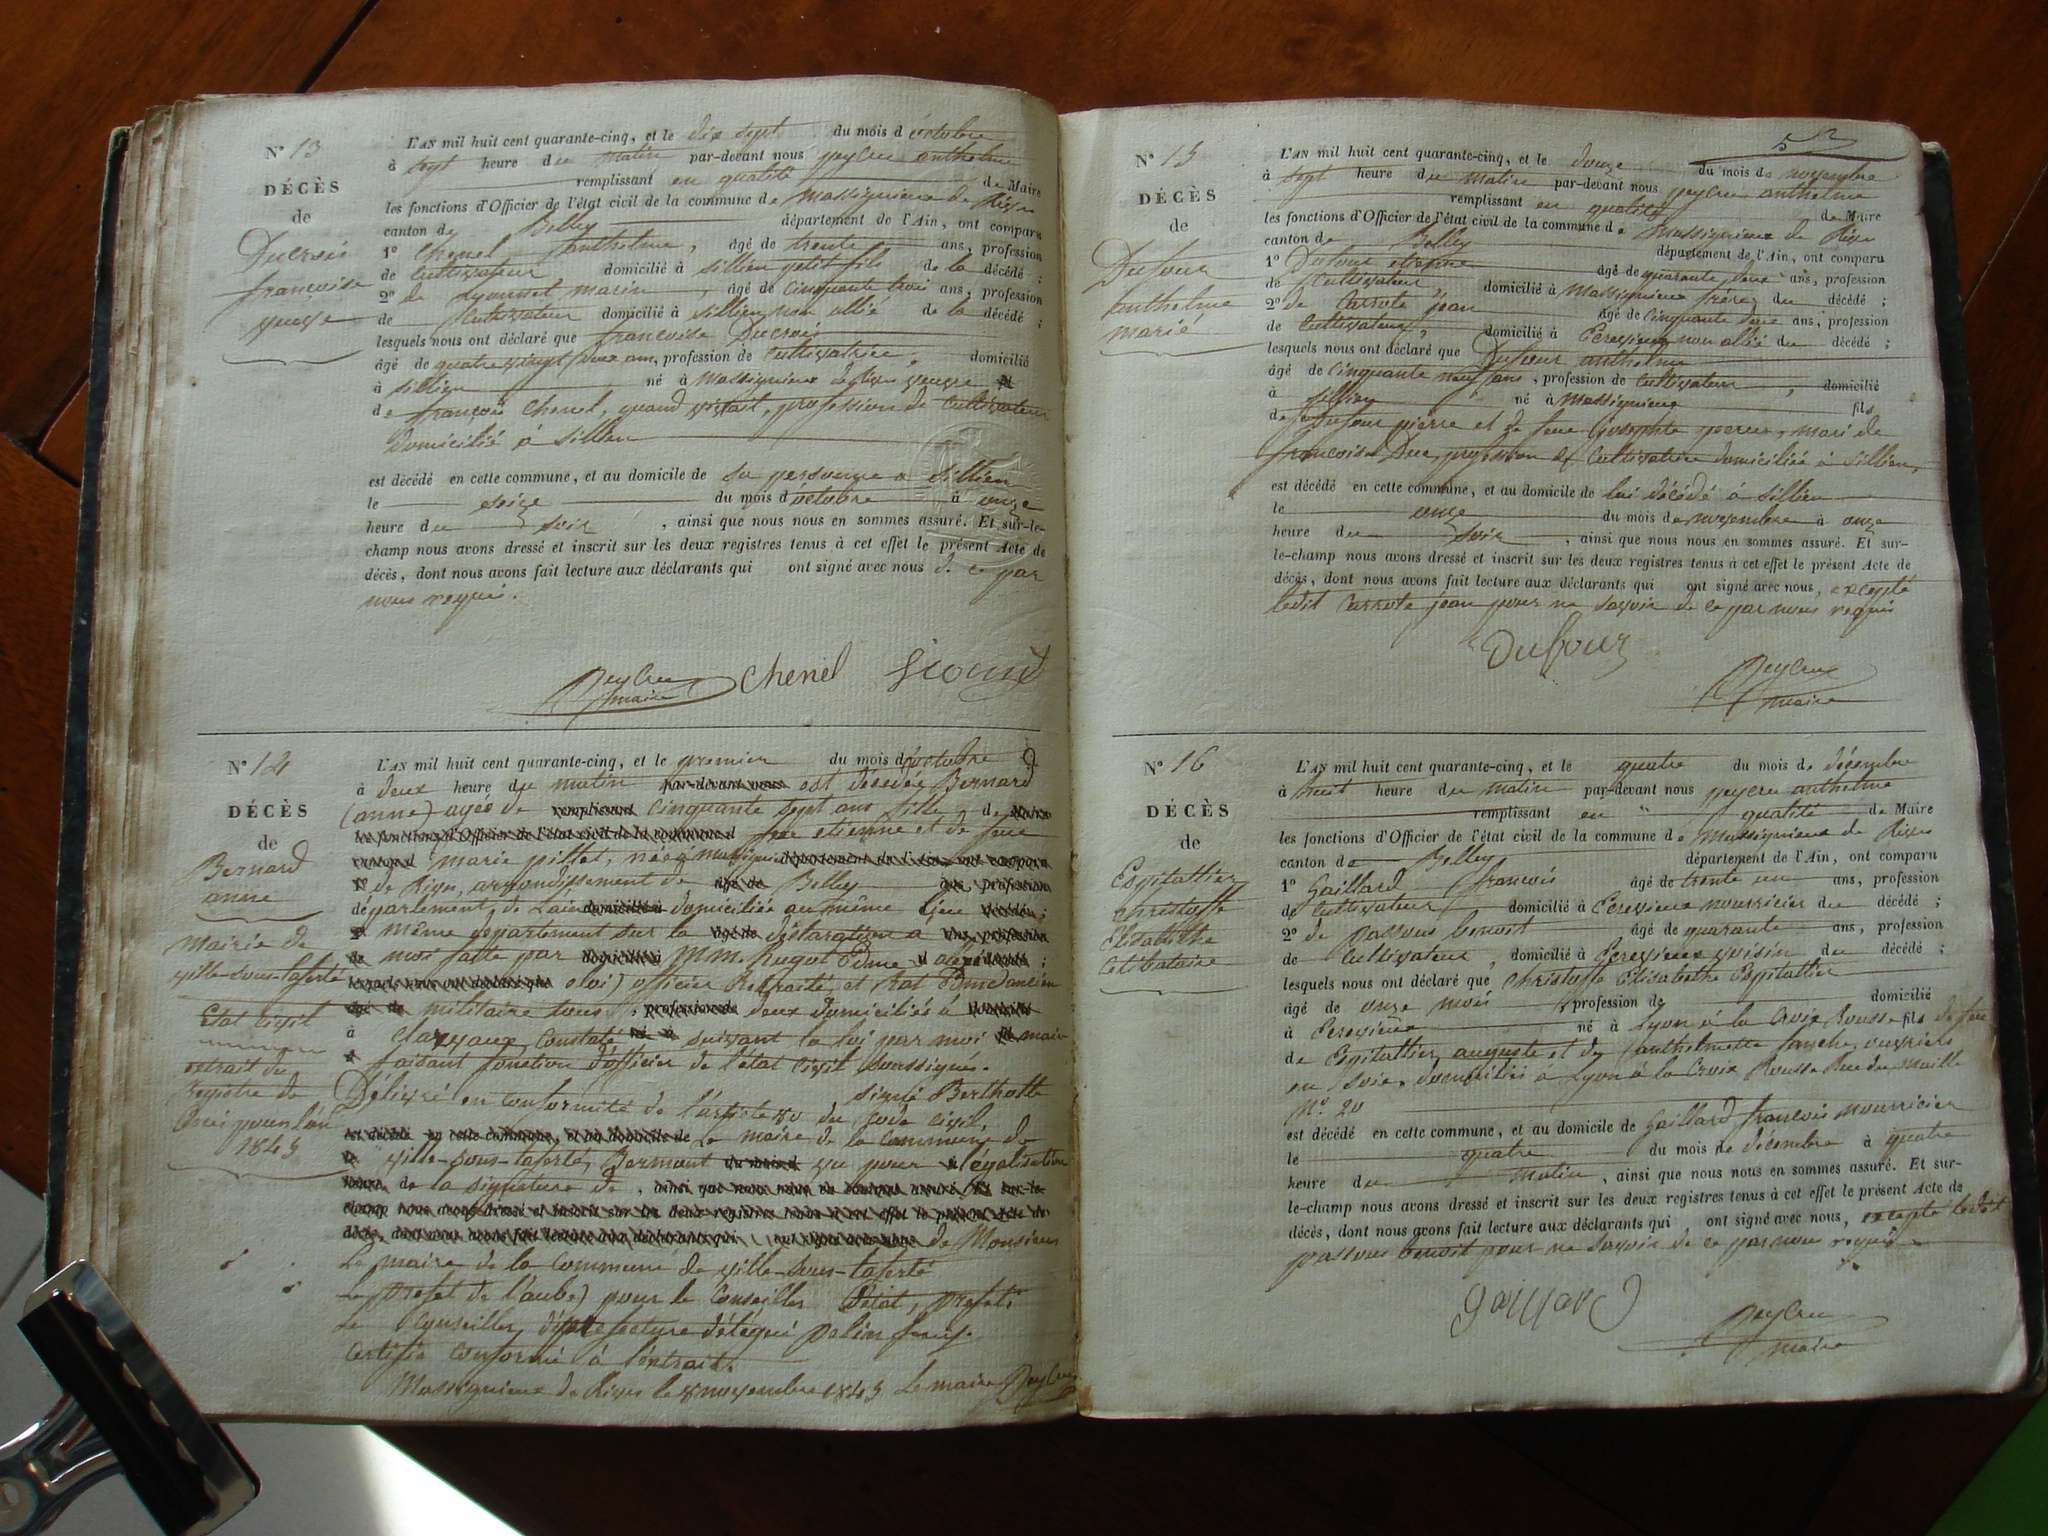 N° 13
DÉCÈS
de
Ducrois
francoise
veuve
L'AN mil huit cent quarante-cinq, et le dix sept du mois d'octobre
à sept heure du matin par-devant nous peycru anthelme
remplissant en qualité de Maire
les fonctions d'Officier de l'état civil de la commune de Massignieux de Rives
canton de Belley département de l'Ain, ont comparu
1° Chenel anthelme, âgé de trente ans, profession
de Cultivateur domicilié à Sillien petit fils de la décédé ;
2° de marin, âgé de Cinquante trois ans, profession
de Cultivateur domicilié à Sillien non allié de la décédé ;
lesquels nous ont déclaré que francoise Ducrois
âgé de quatre vingt deux ans, profession de Cultivatrice, domicilié
à Sillien né à Massignieux veuve
de françois Chenel, quand vivait, profession de Cultivateur
domicilié à Sillien
est décédé en cette commune, et au domicile de sa personne a Sillien
le seize du mois d'octobre à onze
heure du soir, ainsi que nous nous en sommes assuré. Et sur-le-
champ nous avons dressé et inscrit sur les deux registres tenus à cet effet le présent Acte de
décès, dont nous avons fait lecture aux déclarants qui ont signé avec nous de ce par
nous requis.
Peycru
maire
Chenel
N° 14
DÉCÈS
de
Bernard
anne
Mairie de
ville-sous-laferté
Etat Civil
extrait du
registre de
1845
L'AN mil huit cent quarante-cinq, et le premier du mois d'octobre
à deux heure du matin est décédée Bernard
(anne) agée de Cinquante sept ans fille de
feu etienne et de feue
marie pillet, née à Massignieu
de Rives, arrondissement de Belley
département de Lain domiciliée au même lieu
même departement sur la déclaration a
moi faite par MM. hugot Edme
eloi) officier Retraité, et
militaire tous deux domiciliés à
Clairvaux Constaté suivant la loi par moi maire
faisant fonction d'officier de l'état Civil Soussigné.
signé Berthotte
Délivré en conformité de l'article du Code Civil,
Le maire de la Commune de
ville-sous-laferté, vu pour légalisation
de la signature de
de Monsieur
Le maire de la Commune de ville-sous-laferté
Le prefet de l'aube) pour le Conseiller d'état, prefet
Le Conseiller de prefecture délégué
Certifié Conforme à l'extrait.
Massignieux de Rives le 8 novembre 1845 Le maire Peycru
N° 15
DÉCÈS
de
Dufour
anthelme
marié
L'AN mil huit cent quarante-cinq, et le douze du mois de novembre
à sept heure du matin par-devant nous peycru anthelme
remplissant en qualité de Maire
les fonctions d'Officier de l'état civil de la commune de Massignieux de Rives
canton de Belley département de l'Ain, ont comparu
1° Dufour etienne âgé de quarante deux ans, profession
de Cultivateur, domicilié à Massignieux frère du décédé ;
2° de Carrote jean âgé de cinquante deux ans, profession
de Cultivateur, domicilié à Cerevieux non allié du décédé ;
lesquels nous ont déclaré que Dufour anthelme
âgé de cinquante neuf ans, profession de Cultivateur, domicilié
à Sillien né à Massignieux fils
de feu Dufour pierre et de feue josephte mari de
francoise Duc, profession de Cultivatrice domiciliée à Sillien,
est décédé en cette commune, et au domicile de lui décédé à Sillien
le onze du mois de novembre à onze
heure du soir, ainsi que nous nous en sommes assuré. Et sur-
le-champ nous avons dressé et inscrit sur les deux registres tenus à cet effet le présent Acte de
décès, dont nous avons fait lecture aux déclarants qui ont signé avec nous, excepté
ledit Carrote jean pour ne savoir de ce par nous requis
Dufour
Peycru
maire
N° 16
DÉCÈS
de
Espitallier
christoffe
Elisabethe
Celibataire
L'AN mil huit cent quarante-cinq, et le quatre du mois de décembre
à huit heure du matin par-devant nous peycru anthelme
remplissant en qualité de Maire
les fonctions d'Officier de l'état civil de la commune de Massignieux de Rives
canton de Belley département de l'Ain, ont comparu
1° Gaillard francois âgé de trente un ans, profession
de Cultivateur domicilié à Cerevieux nourricier du décédé ;
2° de passous benoit âgé de quarante ans, profession
de Cultivateur, domicilié à Cerevieux voisin du décédé ;
lesquels nous ont déclaré que Christoffe Elisabethe Espitallier
âgé de onze mois profession de domicilié
à Cerevieux né à Lyon à la Croix Rousse fils de feu
de Espitallier auguste et de anthelmette ouvriers
en soie, domiciliés à Lyon à la Croix Rousse Rue du Maille
N° 20
est décédé en cette commune, et au domicile de Gaillard francois nourricier
le quatre du mois de décembre à quatre
heure du matin, ainsi que nous nous en sommes assuré. Et sur-
le-champ nous avons dressé et inscrit sur les deux registres tenus à cet effet le présent Acte de
décès, dont nous avons fait lecture aux déclarants qui ont signé avec nous, excepté ledit
passous benoit pour ne savoir de ce par nous requis
gaillard
Peycru
maire